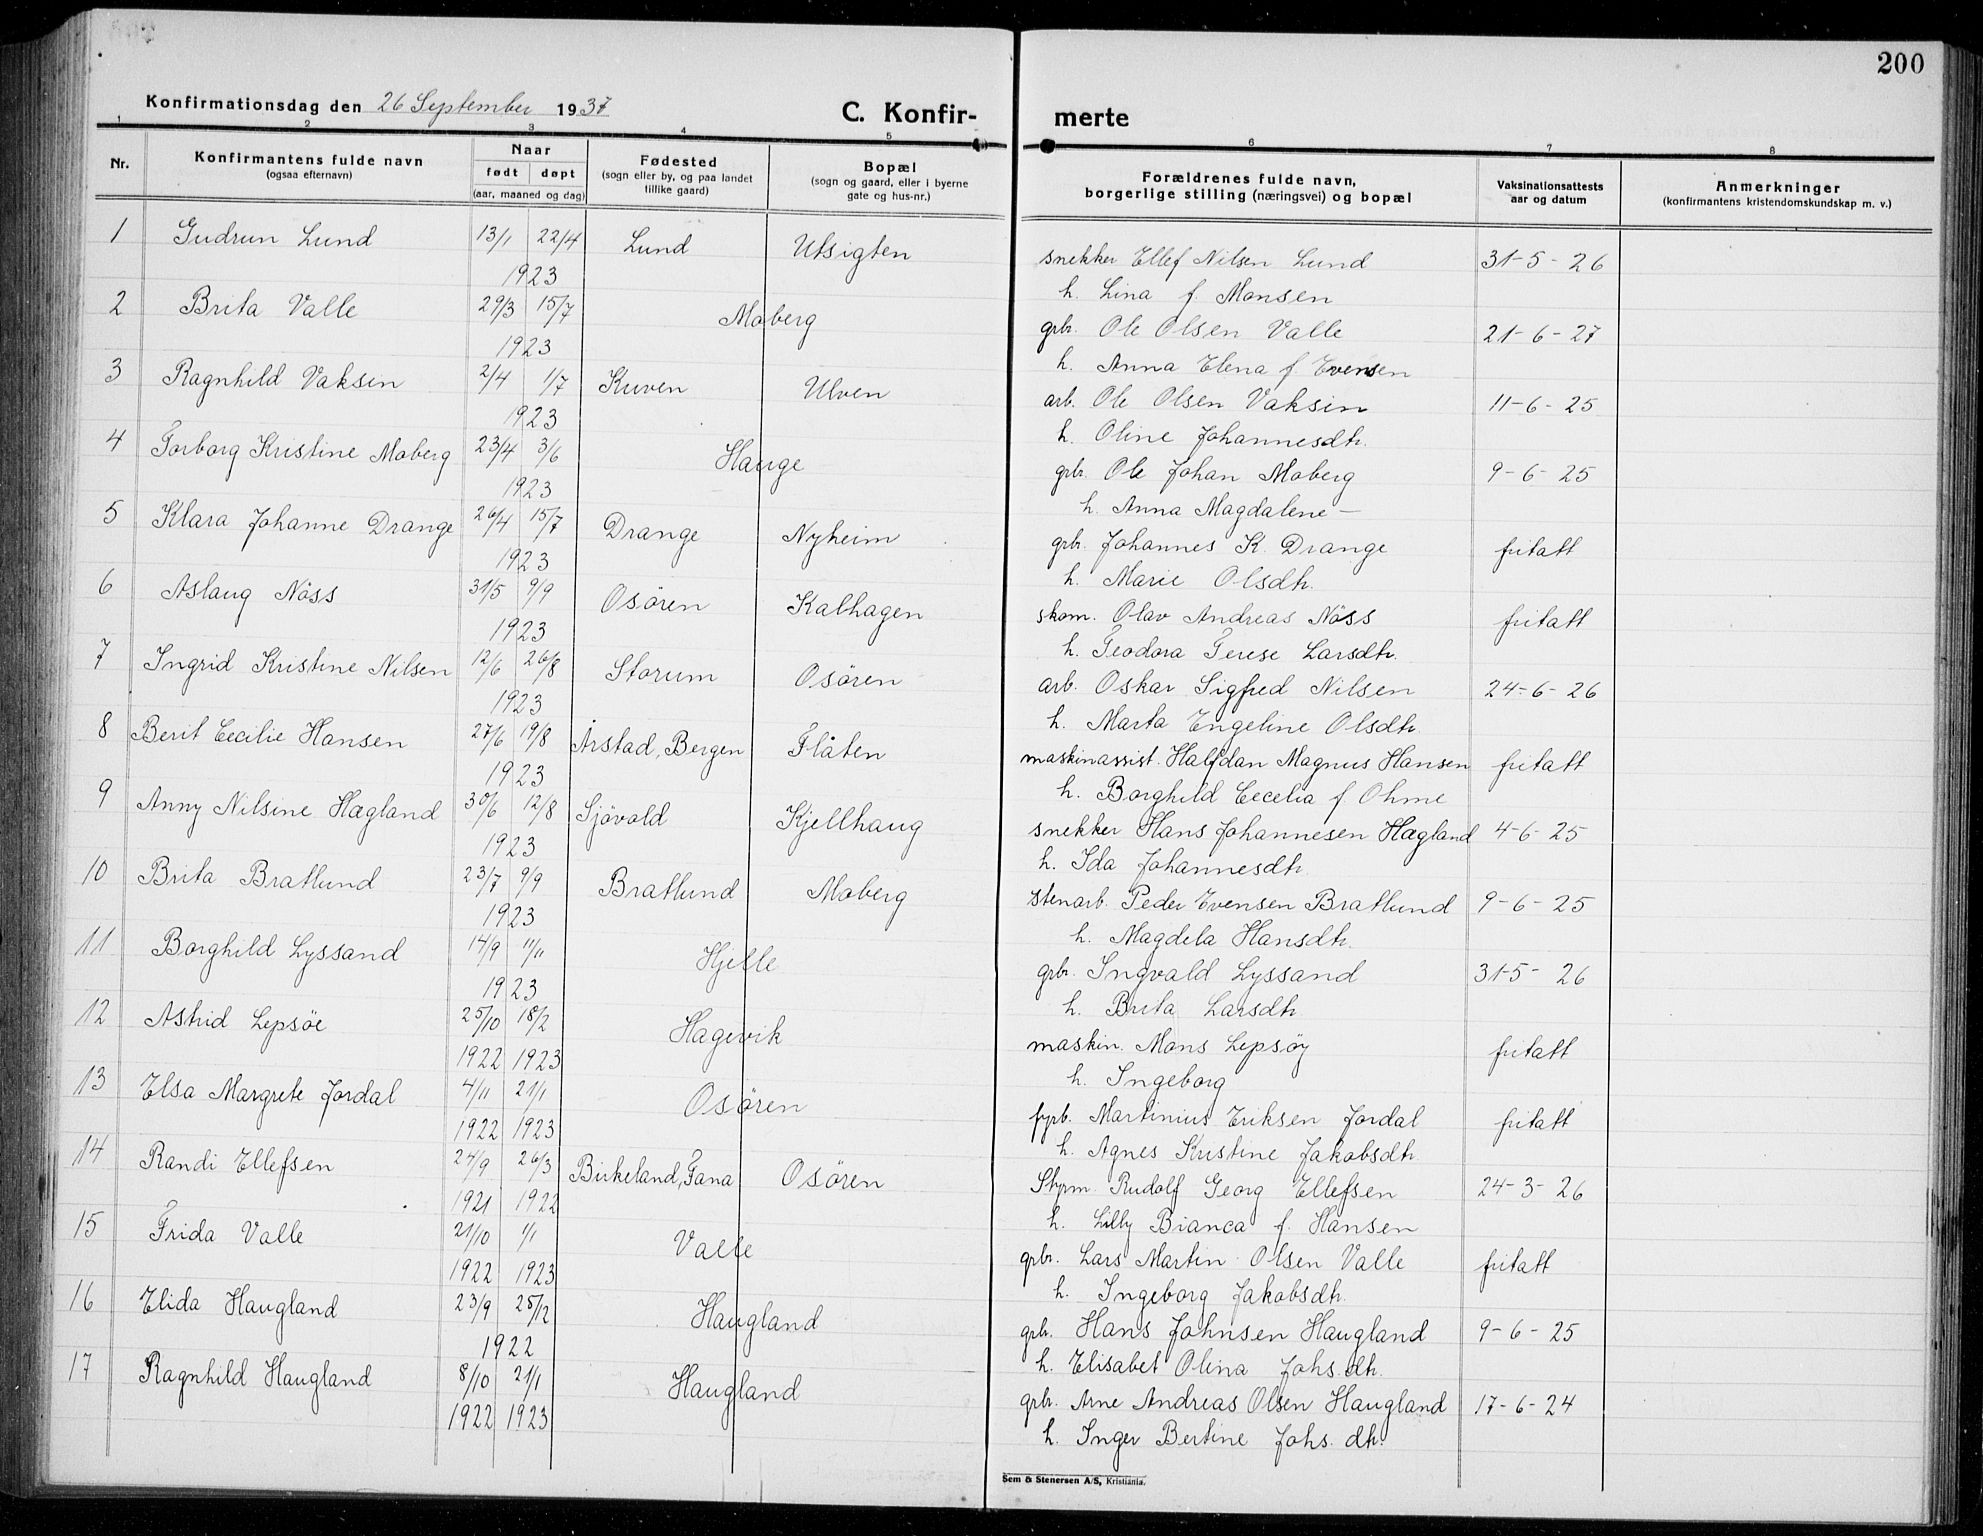 200
Konfirmationsdag den 26 September 1937
C. Konfir-
merte
1 2 3 4 5 6 7 8
Nr.
Konfirmantens fulde navn
(ogsaa efternavn)
Naar
født døpt
(aar, maaned og dag)
Fødested
(sogn eller by, og paa landet
tillike gaard)
Bopæl
(sogn og gaard, eller i byerne
gate og hus-nr.)
Forældrenes fulde navn,
borgerlige stilling (næringsvei) og bopæl
Vaksinationsattests
aar og datum
Anmerkninger
(konfirmantens kristendomskundskap m. v.)
1 Gudrun Lund 13/1 22/4 Lund Utsigten snekker Ellef Nilsen Lund 31-5-26
1923 h. Lina f. Monsen
2 Brita Valle 29/3 15/7 Moberg grbr. Ole Olsen Valle 21-6-27
1923 h. Anna Elena f Evensen
3 Ragnhild Vaksin 2/4 1/7 Kuven Ulven arb. Ole Olsen Vaksin 11-6-25
1923 h. Oline Johannesdtr.
4 Torborg Kristine Moberg 23/4 3/6 Hauge grbr. Ole Johan Moberg 9-6-25
1923 h. Anna Magdalene —
5 Klara Johanne Drange 26/4 15/7 Drange Nyheim grbr. Johannes K. Drange fritatt
1923 h. Marie Olsdtr.
6 Aslaug Nöss 31/5 9/9 Osören Kalhagen skom. Olav Andreas Nöss fritatt
1923 h. Teodora Terese Larsdtr.
7 Ingrid Kristine Nilsen 12/6 26/8 Storum Osören arb. Oskar Sigfred Nilsen 24-6-26
1923 h. Marta Engeline Olsdtr.
8 Berit Cecilie Hansen 27/6 19/8 Årstad, Bergen Flåten maskinassist. Halfdan Magnus Hansen fritatt
1923 h. Borghild Cecelia f. Ohme
9 Anny Nilsine Hægland 30/6 12/8 Sjövold Kjellhaug snekker Hans Johannesen Hægland 4-6-25
1923 h. Ida Johannesdtr.
10 Brita Bratlund 23/7 9/9 Bratlund Moberg stenarb. Peder Evensen Bratlund 9-6-25
1923 h. Magdela Hansdtr.
11 Borghild Lyssand 14/9 11/11 Hjelle grbr. Ingvald Lyssand 31-5-26
1923 h. Brita Larsdtr.
12 Astrid Lepsöe 25/10 18/2 Hagevik maskin. Mons Lepsöy fritatt
1922 1923 h. Ingeborg
13 Elsa Margrete Jordal 4/11 21/1 Osören fyrb. Martinius Eriksen Jordal fritatt
1922 1923 h. Agnes Kristine Jakobsdtr.
14 Randi Ellefsen 24/9 26/3 Birkeland, Fana Osören Styrm. Rudolf Georg Ellefsen 24-3-26
1921 1922 h. Lilly Bianca f. Hansen
15 Frida Valle 21/10 1/1 Valle grbr. Lars Martin Olsen Valle fritatt
1922 1923 h. Ingeborg Jakobsdtr.
16 Elida Haugland 23/9 25/12 Haugland grbr. Hans Johnsen Haugland 9-6-25
1922 h. Elisabet Olina Johs. dtr.
17 Ragnhild Haugland 8/10 21/1 Haugland grbr. Arne Andreas Olsen Haugland 17-6-24
1922 1923 h. Inger Bertine Johs. dtr.
Sem & Stenersen A/S, Kristiania.